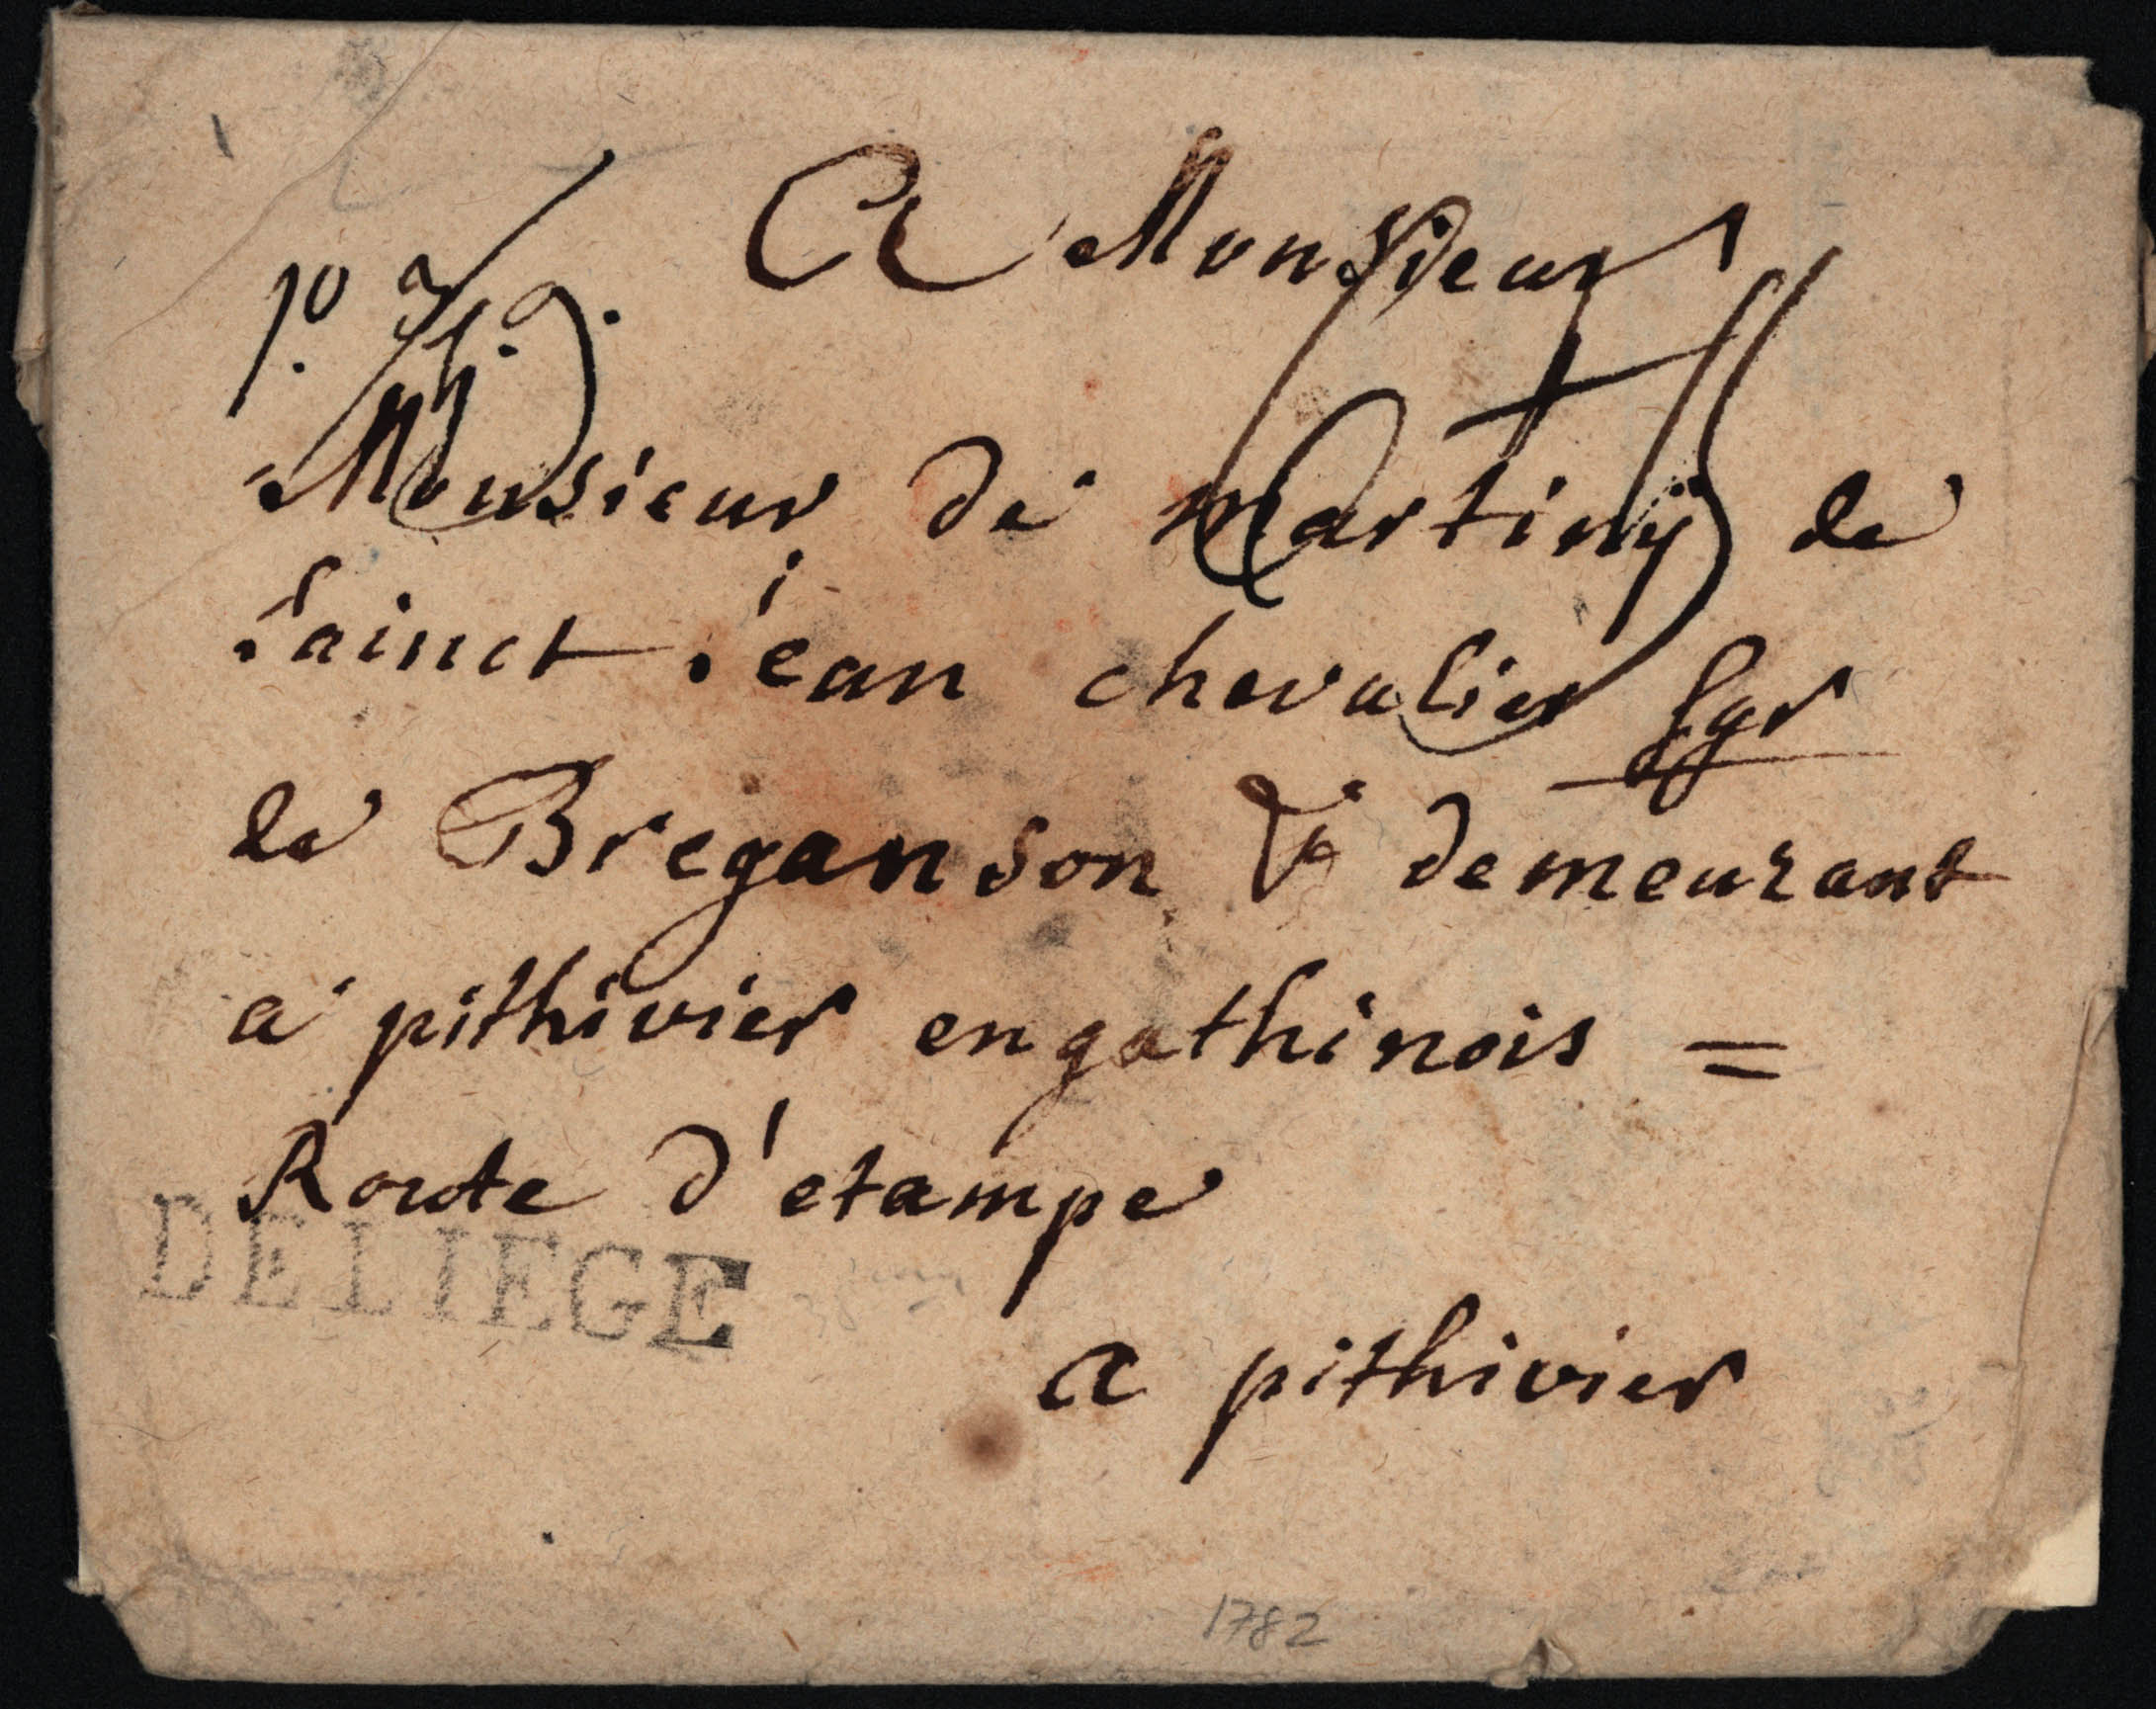 A Monsieur
Monsieur de Martiny de
Sainct Jean chevalier Sgr
de Breganson & demeurant
a pithivier en gathinois =
Route d'etampe
DELIEGE
a pithivier
1782